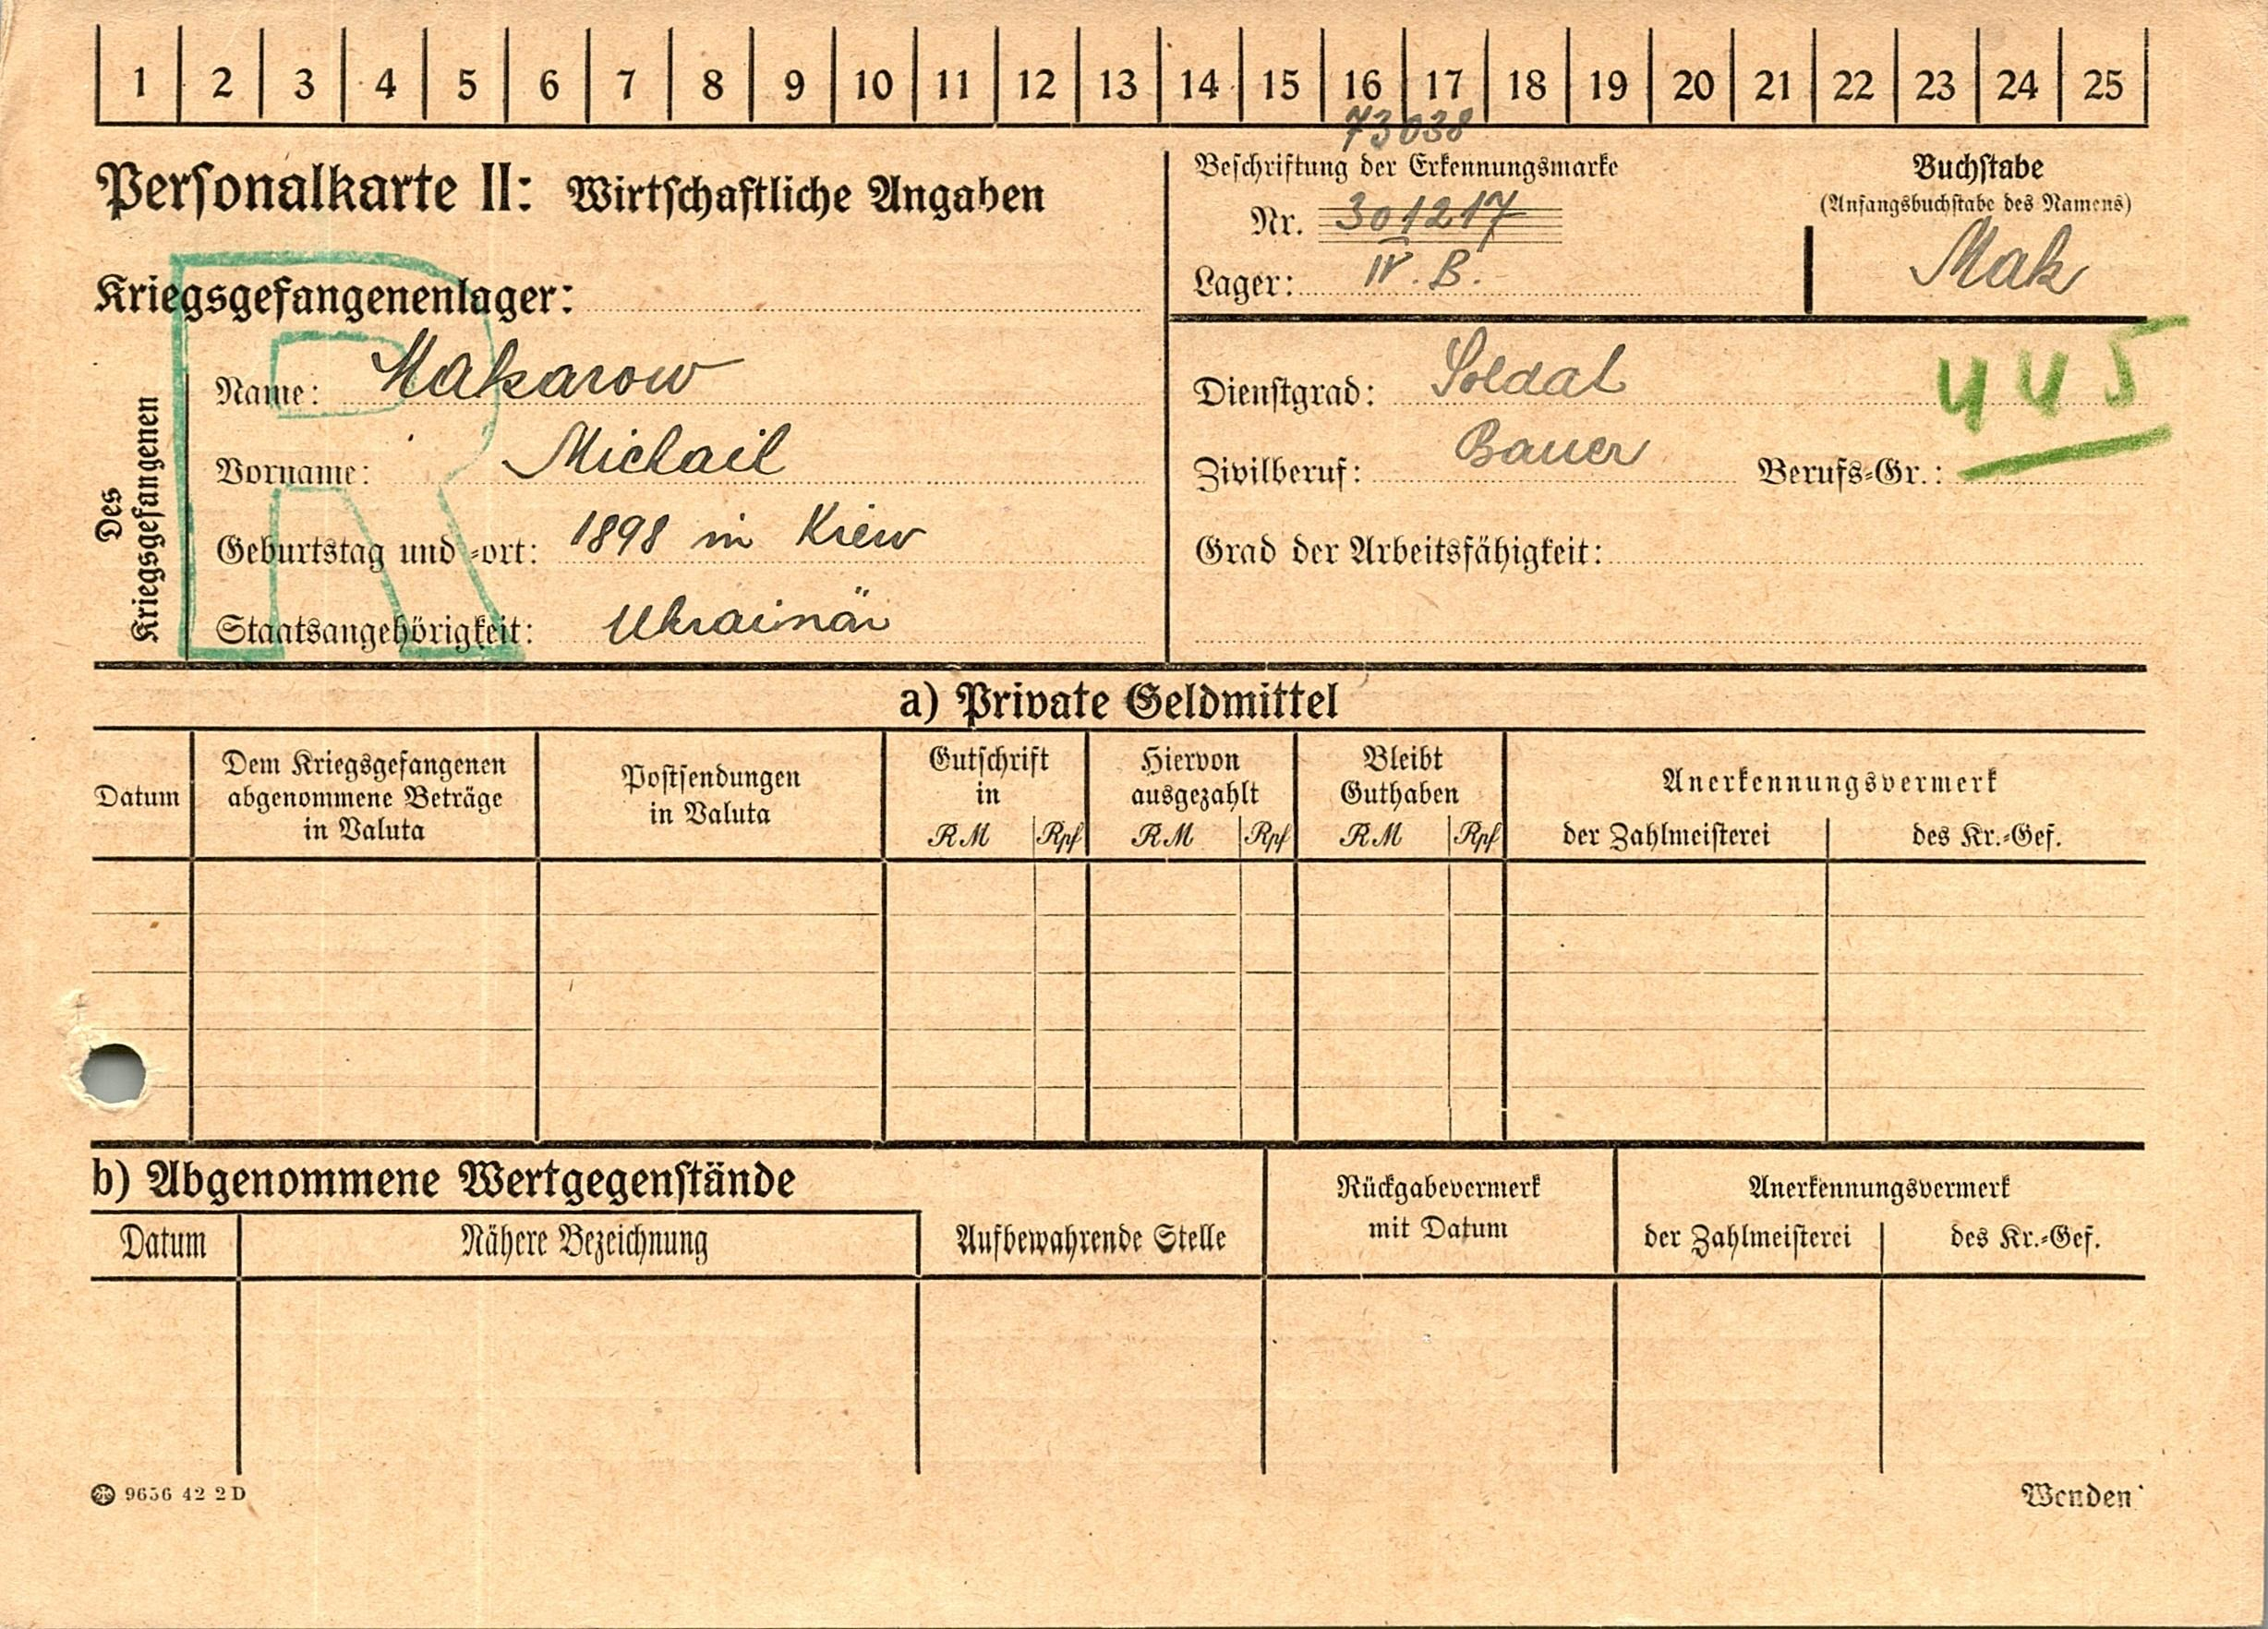 1 2 3 4 5 6 7 8 9 10 11 12 13 14 15 16 17 18 19 20 21 22 23 24 25
73038
Personalkarte II: Wirtschaftliche Angaben
Beschriftung der Erkennungsmarke
Nr. 301217
Lager: IV. B.
Buchstabe
(Anfangsbuchstabe des Namens)
Mak
Kriegsgefangenenlager:
R
Des
Kriegsgefangenen
Name: Makarow
Vorname: Michail
Geburtstag und -ort: 1898 in Kiew
Staatsangehörigkeit: Ukrainär
Dienstgrad: Soldat
445
Zivilberuf: Bauer Berufs-Gr.:
Grad der Arbeitsfähigkeit:
a) Private Geldmittel
Datum
Dem Kriegsgefangenen
abgenommene Beträge
in Valuta
Postsendungen
in Valuta
Gutschrift
in
RM Rpf
Hiervon
ausgezahlt
RM Rpf
Bleibt
Guthaben
RM Rpf
Anerkennungsvermerk
der Zahlmeisterei des Kr.-Gef.
b) Abgenommene Wertgegenstände
Datum Nähere Bezeichnung
Aufbewahrende Stelle
Rückgabevermerk
mit Datum
Anerkennungsvermerk
der Zahlmeisterei des Kr.-Gef.
9656 42 2 D
Wenden